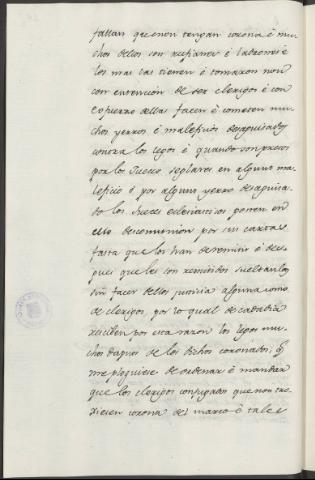 fallan que non tengan corona é mu
chos dellos son rufianes é ladrones é
los mas las tienen é tomaron non
con entencion de ser clerigos é con
esfuerzo della facen é cometen mu
chos yerros é maleficios desaguisados
contra los legos é quando son presos
por los Jueces seglares en algun ma
leficio é por algun yerro desaguisa
do los Jueces eclesiasticos ponen en
ello descomunion por sus cartas
fasta que los han de remitir é des
pues que les son remitidos sueltanlos
sin facer dellos justicia alguna como
de clerigos, por lo qual de cada dia
reciben por esta razon los legos mu
chos daños de los dichos coronados; q.
me ploguiese de ordenar é mandar
que los clerigos conjugados que non tro
xiesen corona de marco é tales